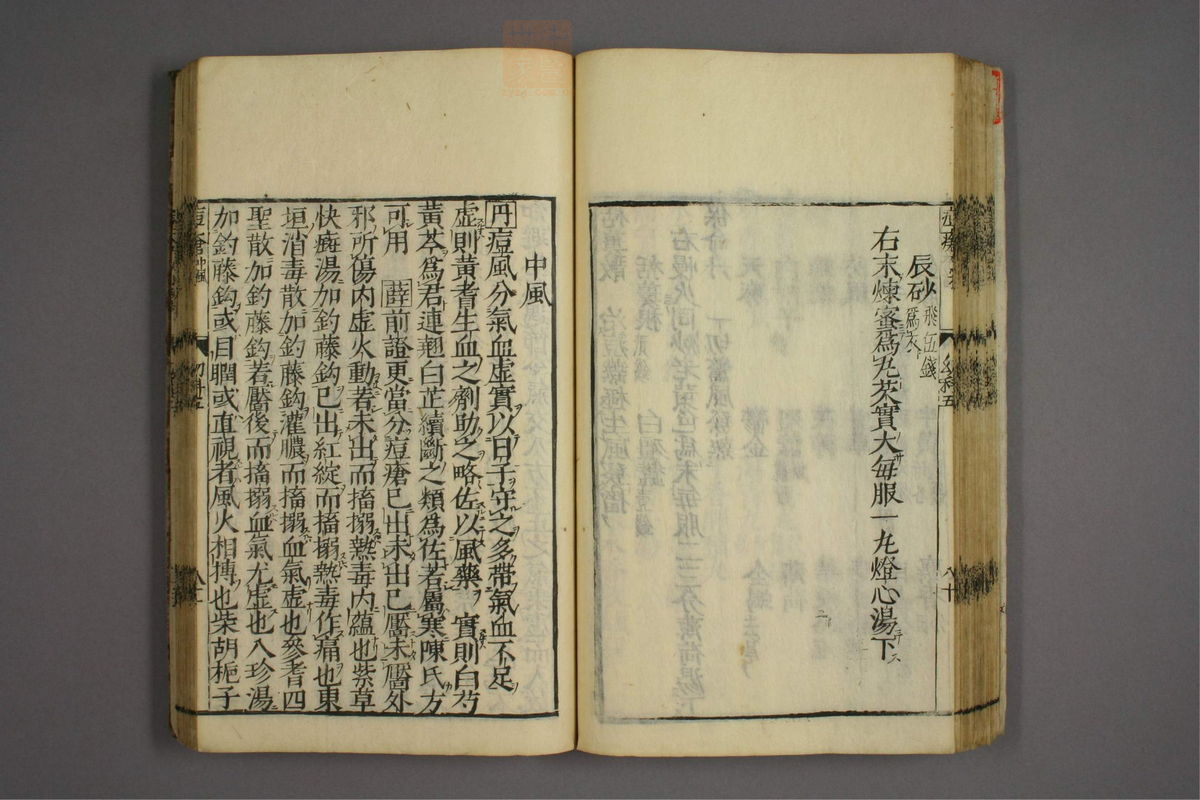 辰砂飛伍錢爲衣
右末煉蜜爲丸芡實大毎服一丸燈心湯下
八十
中風
丹痘風分氣血虚實以日子守之多帶氣血不足
虚則黄耆生血之劑助之略佐以風藥實則白芍
黄芩爲君連翹白芷續斷之類爲佐若屬寒陳氏方
可用薛前證更當分痘瘡已出未出已靨未靨外
邪所傷内虚火動若未出而搐搦熱毒内蘊也紫草
快癍湯加釣藤鈎已出紅綻而搐搦熱毒作痛也東
垣消毒散加釣藤鈎灌膿而搐搦血氣虚也參耆四
聖散加釣藤鈎若靨後而搐搦血氣尤虚也八珍湯
加釣藤鈎或目瞤或直視者風火相搏也柴胡梔子
痘瘡中風